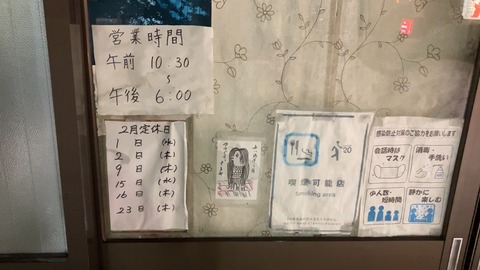 営業時間
午前 10:30
〜
午後 6:00
2月定休日
1日 (水)
2日 (木)
9日 (木)
15日 (水)
16日 (木)
23日 (木)
20
喫煙可能店
Smoking area
感染防止対策のご協力をお願いします
会話時は
マスク
消毒・
手洗い
少人数・
短時間
静かに
楽しむ